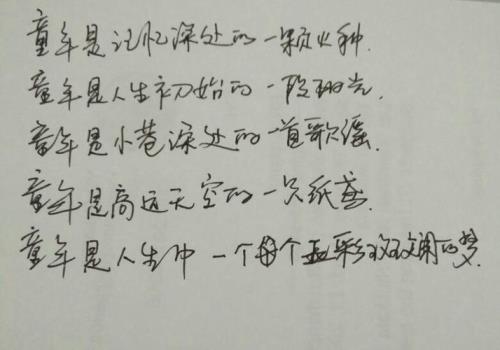 童年是记忆深处的一颗火种.
童年是人生初始的一段珊光.
童年是小巷深处的一首歌谣.
童年是高远天空的一只纸鸢.
童年是人生中一个每个五彩斑斓的梦.